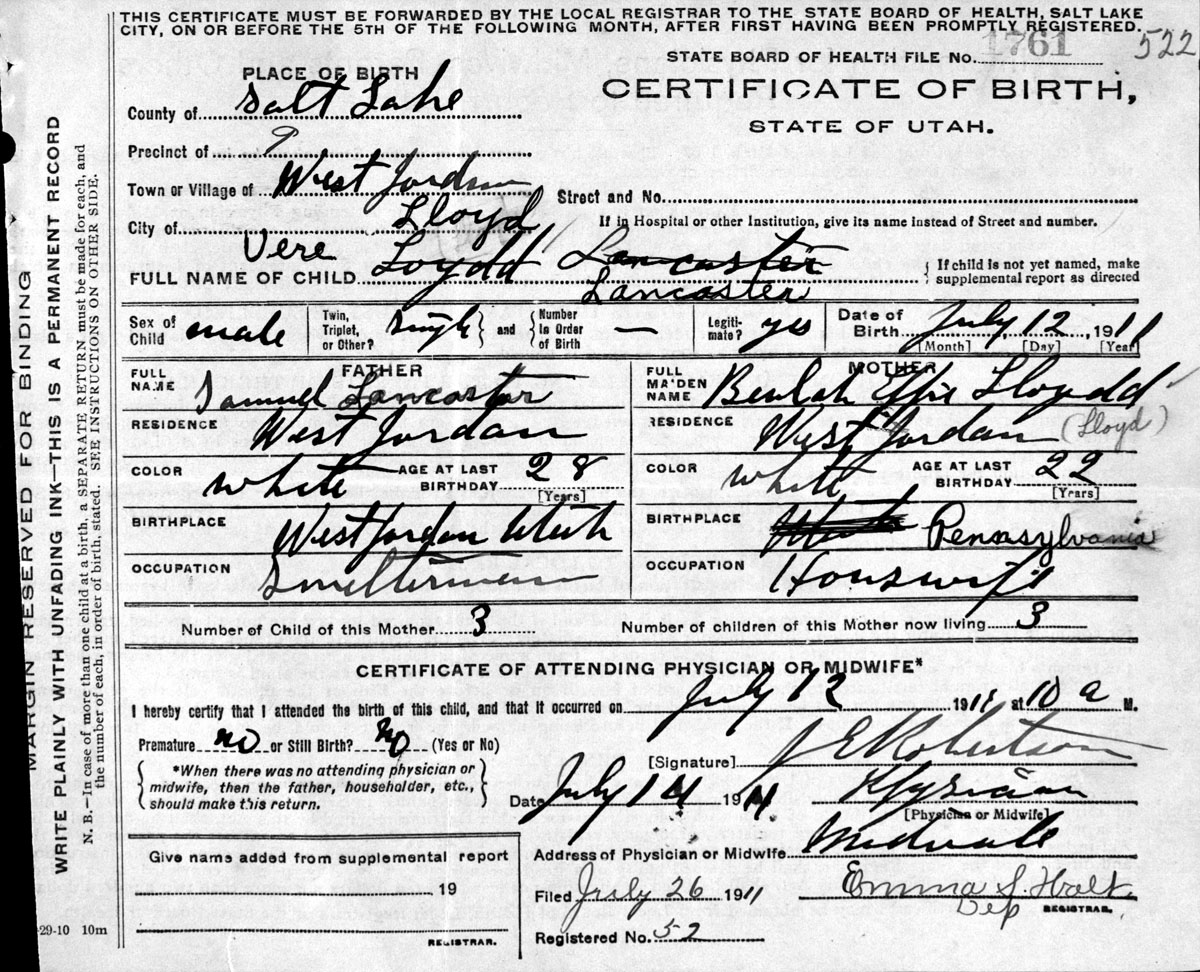 THIS CERTIFICATE MUST BE FORWARDED BY THE LOCAL REGISTRAR TO THE STATE BOARD OF HEALTH, SALT LAKE
CITY, ON OR BEFORE THE 5TH OF THE FOLLOWING MONTH, AFTER FIRST HAVING BEEN PROMPTLY REGISTERED.
STATE BOARD OF HEALTH FILE No. 1761 522
PLACE OF BIRTH
CERTIFICATE OF BIRTH,
STATE OF UTAH.
County of Salt Lake
Precinct of
Town or Village of West Jordan Street and No.
Lloyd
City of If in Hospital or other Institution, give its name instead of Street and number.
Vere
FULL NAME OF CHILD Loydd Lancaster { If child is not yet named, make supplemental report as directed
Lancaster
Sex of Child male Twin, Triplet, or Other? single } and { Number in Order of Birth — Legiti-mate? yes Date of Birth July 12, 1911
[Month] [Day] [Year]
FATHER MOTHER
FULL NAME Samuel Lancaster FULL MAIDEN NAME Beulah Effie Lloydd
(Lloyd)
RESIDENCE West Jordan RESIDENCE West Jordan
COLOR white AGE AT LAST BIRTHDAY 28 [Years] COLOR white AGE AT LAST BIRTHDAY 22 [Years]
BIRTHPLACE West Jordan Utah BIRTHPLACE Pennsylvania
OCCUPATION Smelterman OCCUPATION Houswife
Number of Child of this Mother 3 Number of children of this Mother now living 3
CERTIFICATE OF ATTENDING PHYSICIAN OR MIDWIFE*
I hereby certify that I attended the birth of this child, and that it occurred on July 12 1911 at 10 a M.
Premature no or Still Birth? No (Yes or No)
[Signature] J E Robertson
{ *When there was no attending physician or
midwife, then the father, householder, etc.,
should make this return. }
Date July 14 1911
[Physician or Midwife]
Address of Physician or Midwife Midvale
Give name added from supplemental report
19
REGISTRAR.
Filed July 26 1911 Emma S. Holt
Dep REGISTRAR.
Registered No. 52
-29-10 10m
MARGIN RESERVED FOR BINDING
WRITE PLAINLY WITH UNFADING INK—THIS IS A PERMANENT RECORD
N. B.—In case of more than one child at a birth, a SEPARATE RETURN must be made for each, and
the number of each, in order of birth, stated. SEE INSTRUCTIONS ON OTHER SIDE.